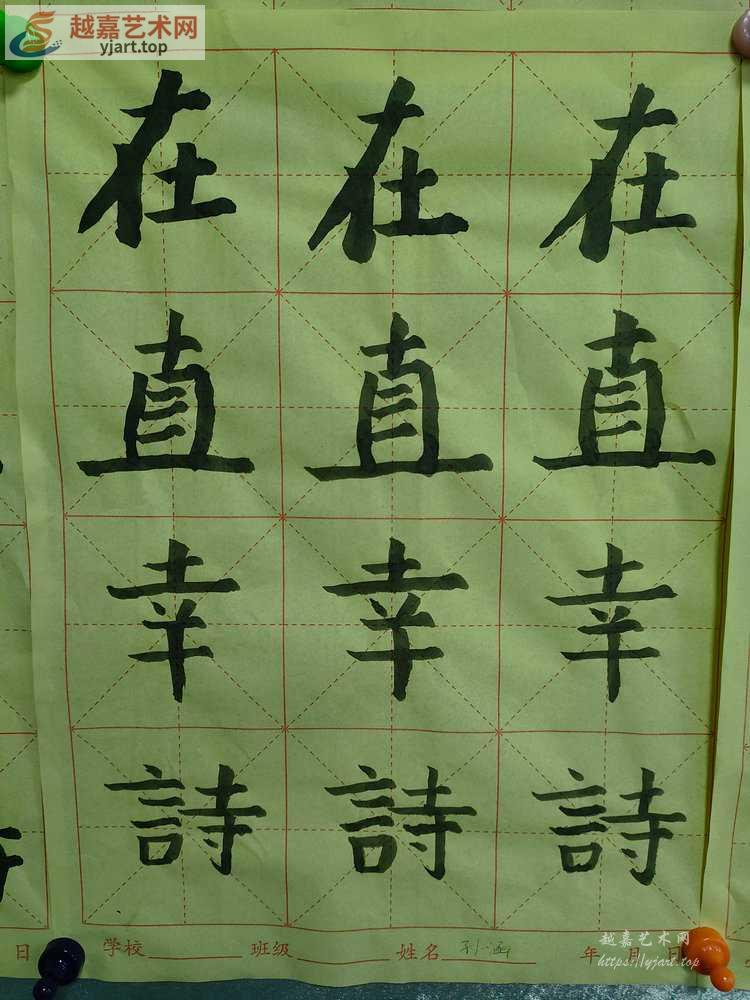 越嘉艺术网
yjart.top
在 在 在
直 直 直
幸 幸 幸
詩 詩 詩
日 学校 班级 姓名 孙涵 年 月 日
越嘉艺术网
https://yjart.top